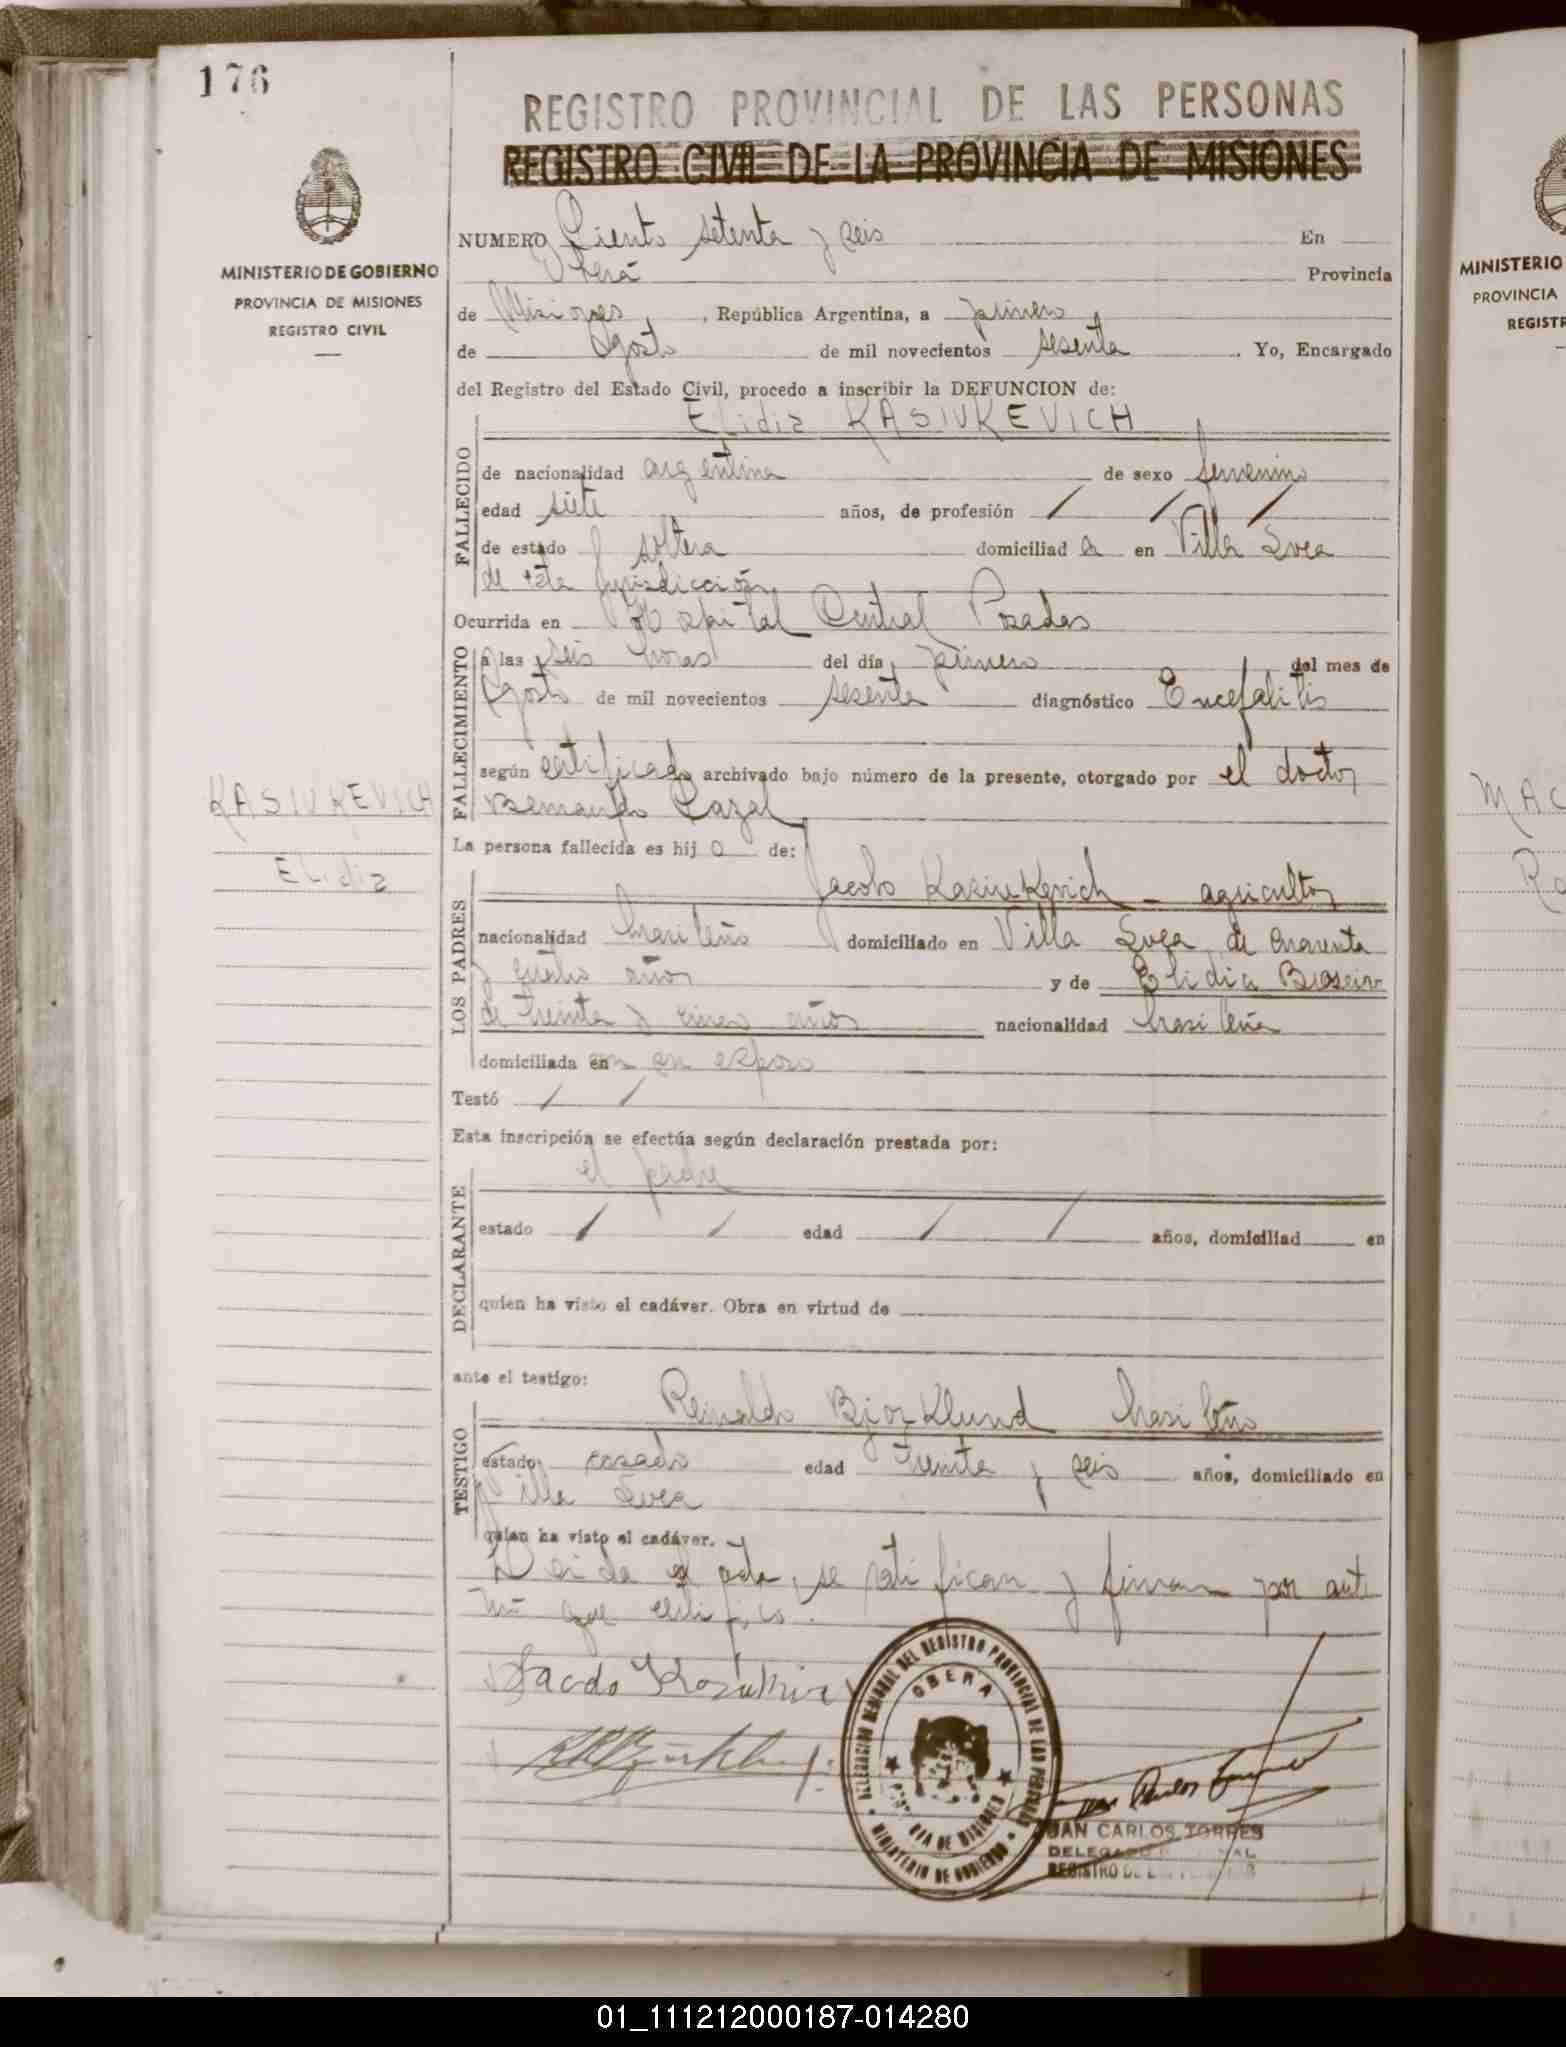 176
REGISTRO PROVINCIAL DE LAS PERSONAS
REGISTRO CIVIL DE LA PROVINCIA DE MISIONES
MINISTERIO DE GOBIERNO
PROVINCIA DE MISIONES
REGISTRO CIVIL
NUMERO Ciento setenta y seis En
Oberá Provincia
de Misiones, República Argentina, a primero
de Agosto de mil novecientos sesenta. Yo, Encargado
del Registro del Estado Civil, procedo a inscribir la DEFUNCION de:
Elidia KASIUKEVICH
FALLECIDO
de nacionalidad argentina de sexo femenino
edad siete años, de profesión / / /
de estado soltera domiciliad a en Villa Svea
de esta Jurisdicción
Ocurrida en Hospital Central Posadas
FALLECIMIENTO
a las seis horas del día primero del mes de
Agosto de mil novecientos sesenta diagnóstico Encefalitis
según certificado archivado bajo número de la presente, otorgado por el doctor
KASIUKEVICH
Elidia
La persona fallecida es hij a de:
LOS PADRES
Jacobo Kasiukevich - agricultor
nacionalidad brasileño domiciliado en Villa Svea, de cuarenta
y cuatro años y de Elidia
de treinta y cinco años nacionalidad brasileña
domiciliada en esposo
Testó / /
Esta inscripción se efectúa según declaración prestada por:
el padre
DECLARANTE
estado / / edad / / años, domiciliad en
quien ha visto el cadáver. Obra en virtud de
ante el testigo:
TESTIGO
Reinaldo Bjorklund brasileño
estado casado edad treinta y seis años, domiciliado en
Villa Svea
quien ha visto el cadáver.
Leida el acta, se ratifican y firman por ante
mi que certifico.
DELEGACION REGIONAL DEL REGISTRO PROVINCIAL DE LAS PERSONAS
OBERA
PROVINCIA DE MISIONES
MINISTERIO DE GOBIERNO
JUAN CARLOS TORRES
DELEGADO REGIONAL
REGISTRO DE LAS PERSONAS
MINISTERIO
PROVINCIA
REGISTR
MAC
01_111212000187-014280